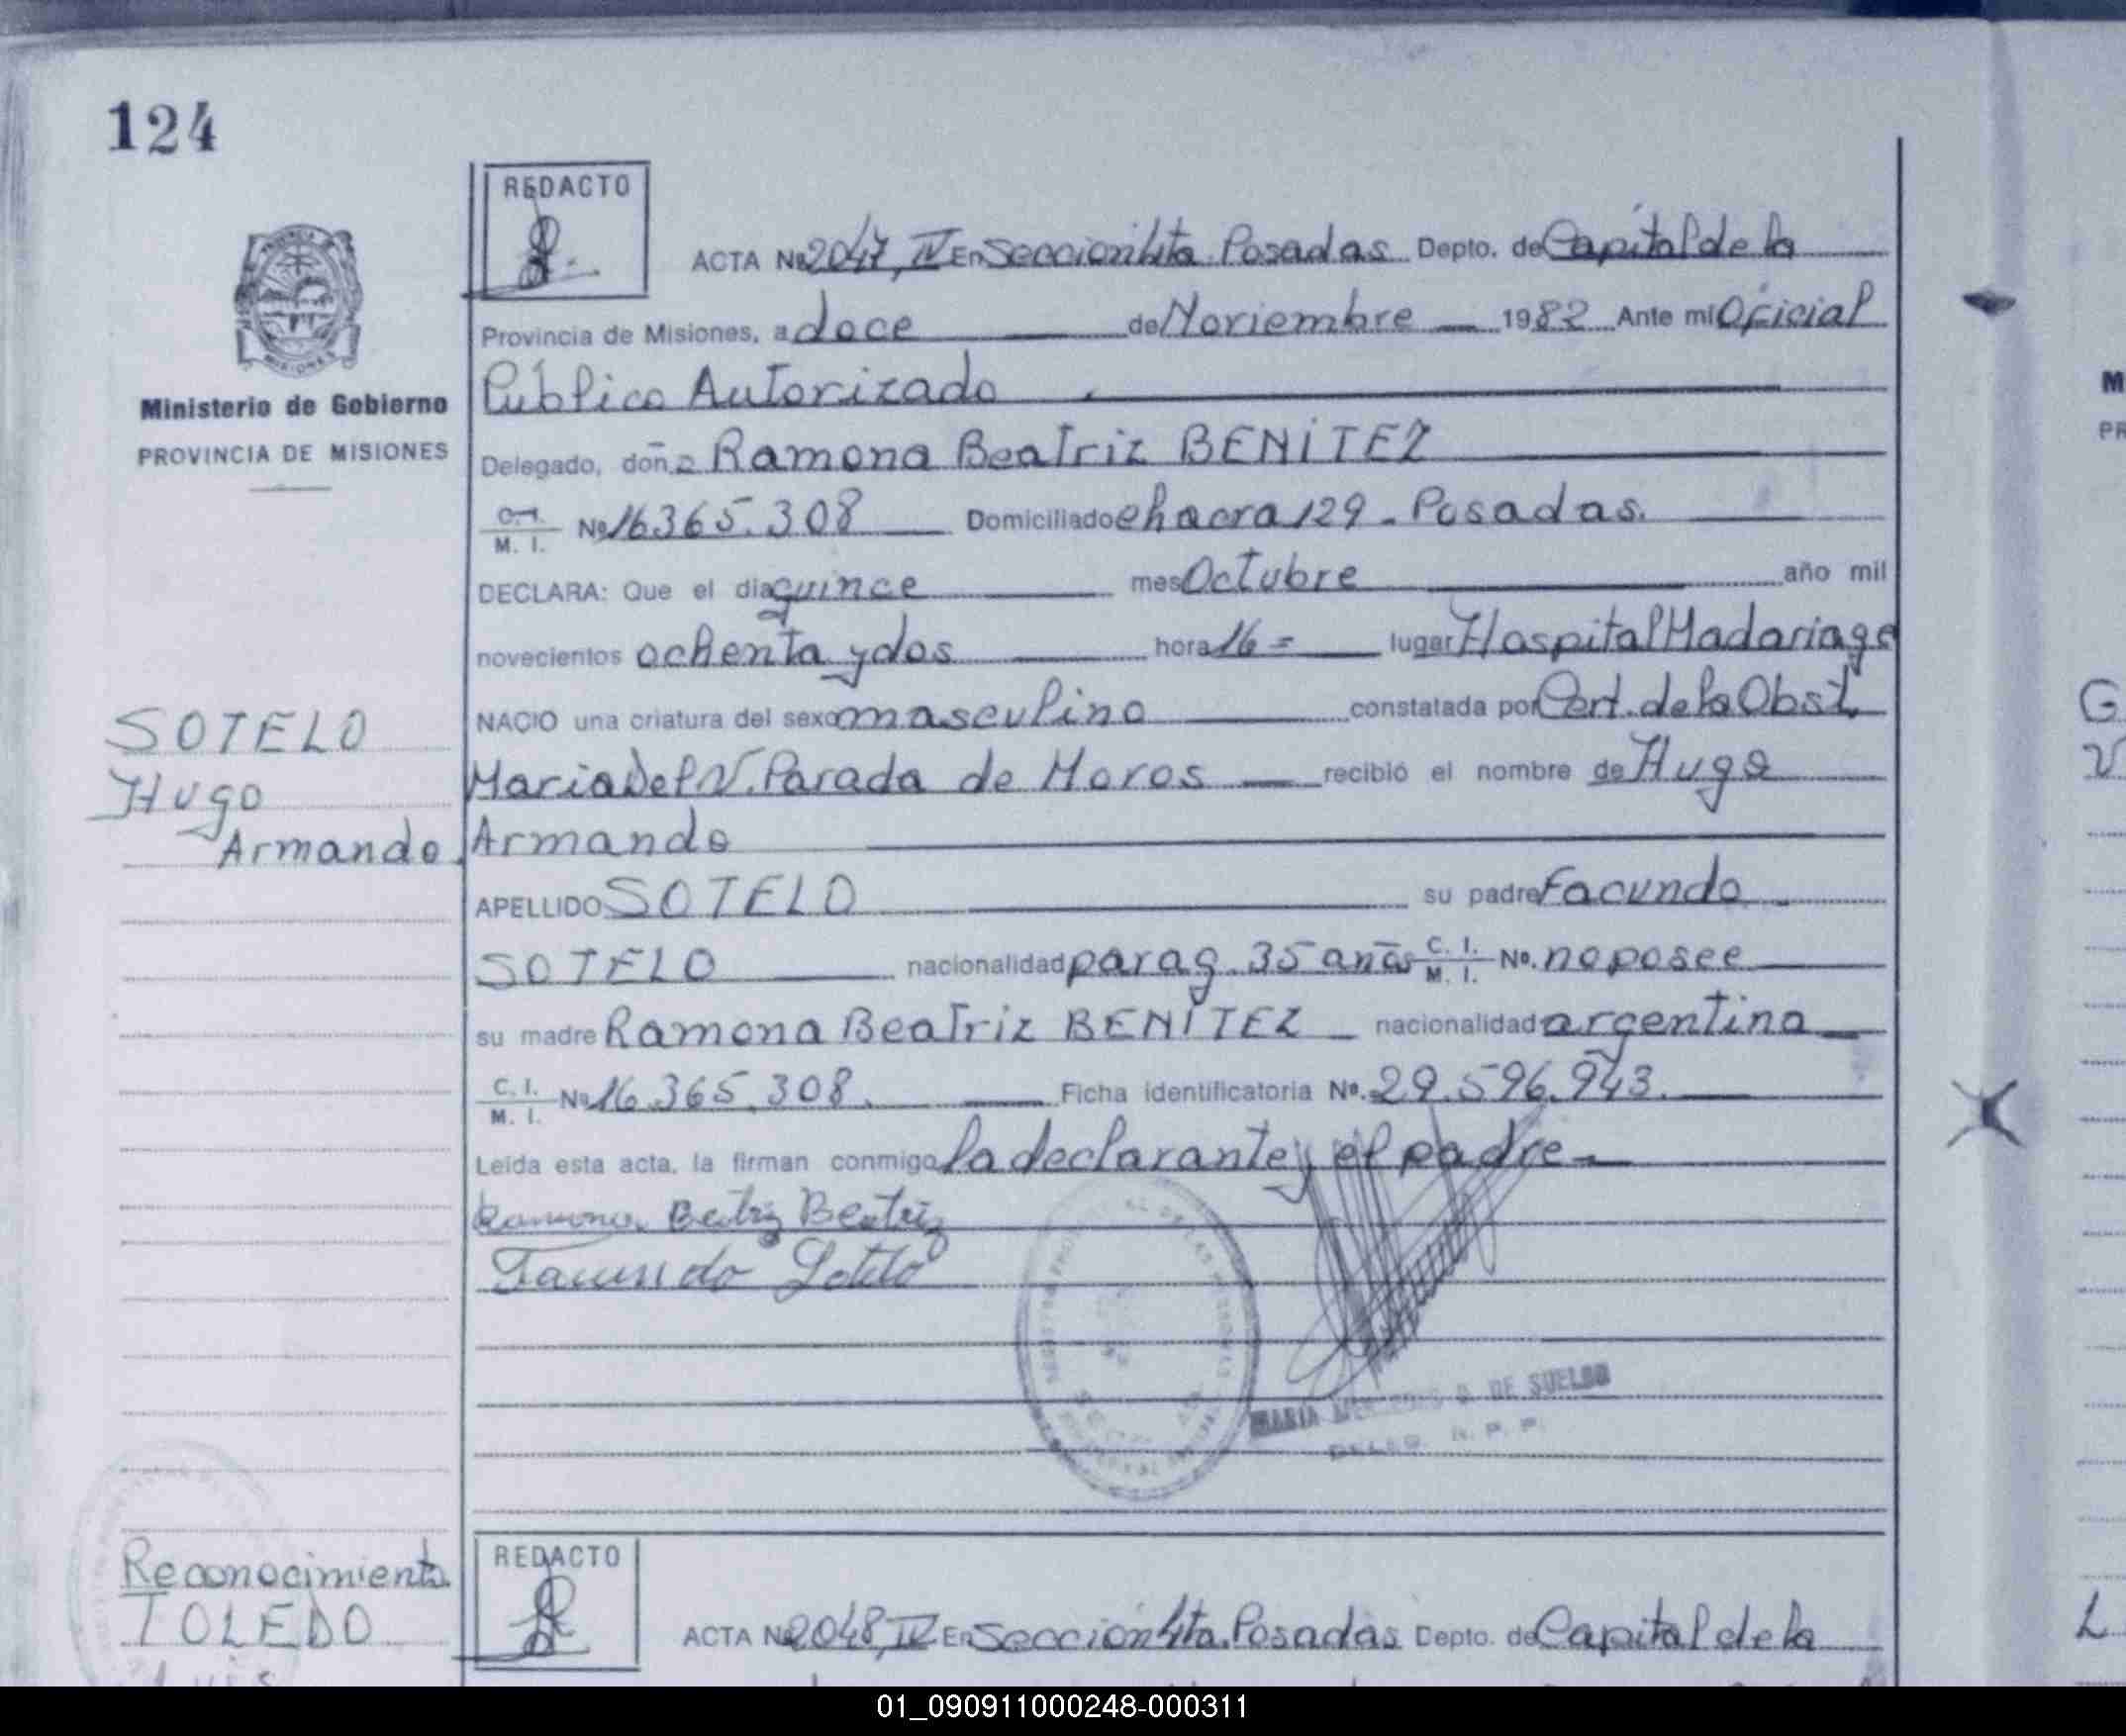 124
REDACTO
ACTA Nº 2047, IV En Seccion 4ta. Posadas Depto. de Capital de la
Provincia de Misiones, a doce de Noviembre 1982 Ante mi Oficial
Público Autorizado
Ministerio de Gobierno
PROVINCIA DE MISIONES
MISIONES
Delegado, doña Ramona Beatriz BENÍTEZ
C. I. M. I. Nº 16365.308 Domiciliado Chacra 129 - Posadas.
DECLARA: Que el dia quince mes Octubre año mil
novecientos ochenta y dos hora 16 = lugar Hospital Madariaga
NACIO una criatura del sexo masculino constatada por Cert. de la Obst.
Maria Del V. Parada de Moros recibió el nombre de Hugo
Armando
SOTELO
Hugo
Armando
APELLIDO SOTELO su padre Facundo
SOTELO nacionalidad parag. 35 años C. I. M. I. Nº. no posee
su madre Ramona Beatriz BENÍTEZ nacionalidad argentina
C. I. M. I. Nº 16.365.308. Ficha identificatoria Nº. 29.596.943.
Leída esta acta, la firman conmigo la declarante y el padre
Ramona Beatriz Beatriz
Facundo Sotelo
MARIA DE SUELDO
R. P. P.
Reconocimiento
TOLEDO
Luis
REDACTO
ACTA Nº 2048, IV En Sección 4ta. Posadas Depto. de Capital de la
M
PR
G
V
L
01_090911000248-000311